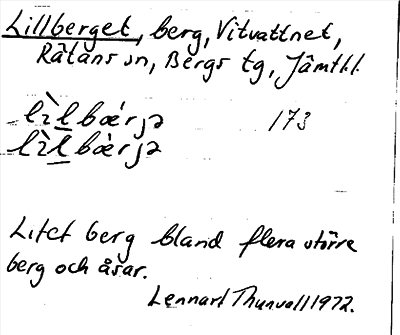 Lillberget, berg, Vitvattnet,
Rätans sn, Bergs tg, Jämtl.l.
lìlbǽrjə 173
lìlbæ̀rjə
Litet berg bland flera större
berg och åsar.
Lennart Thunvall 1972.